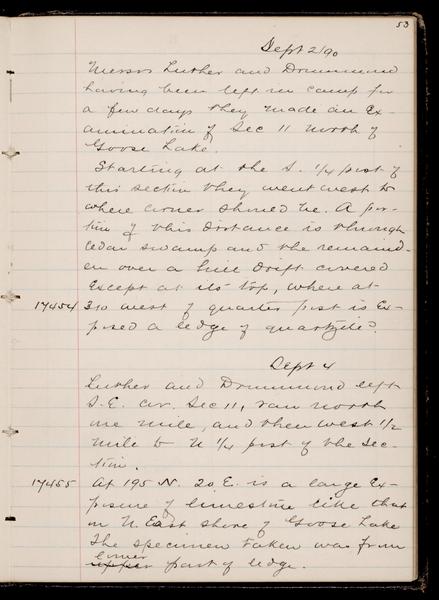 53
Sept 2/90
Messrs Luther and Drummond
having been left in camp for
a few days they made an Ex-
amination of Sec 11 North of
Goose Lake.
Starting at the S. 1/4 post of
this section they went west to
where corner should be. A por-
tion of this distance is through
cedar swamp and the remaind-
er over a hill drift covered
Except at its top, where at
17454 310 west of quarter post is Ex-
posed a ledge of quartzite.
Sept 4
Luther and Drummond left
S.E. cor. Sec 11, ran north
one mile, and then west 1/2
mile to N 1/4 post of the Sec-
tion.
17455 At 195 N. 20 E. is a large Ex-
posure of limestone like that
on N. East shore of Goose Lake
The specimen taken was from
lower
upper part of ledge.